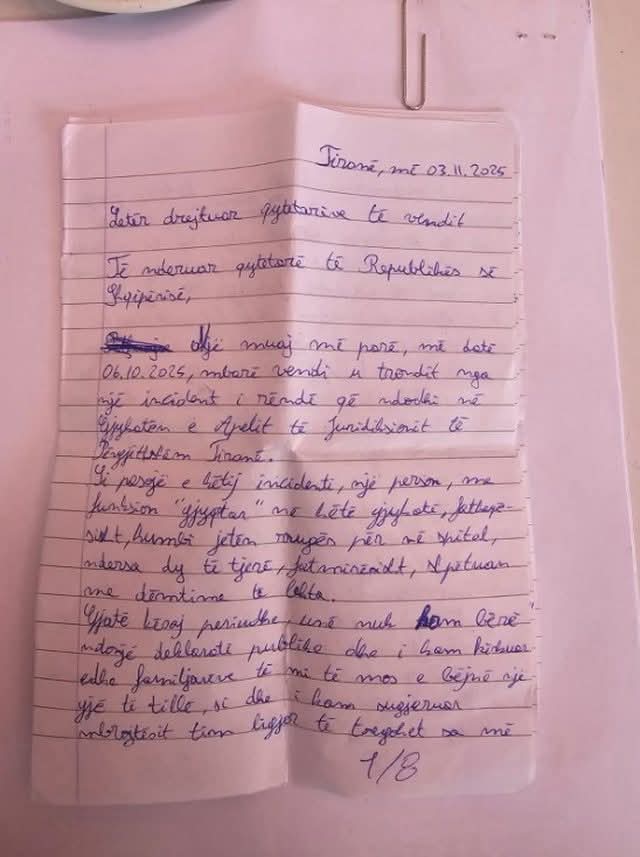 Tiranë, më 03.11.2025
Letër drejtuar qytetarëve të vendit
Të nderuar qytetarë të Republikës së
Shqipërisë,
Një muaj më parë, më datë
06.10.2025, mbarë vendi u trondit nga
një incident i rëndë që ndodhi në
Gjykatën e Apelit të Juridiksionit të
Përgjithshëm Tiranë.
Si pasojë e këtij incidenti, një person, me
funksion "gjyqtar" në këtë gjykatë, fatkeqë-
sisht, humbi jetën rrugës për në spital,
ndersa dy të tjerë, fatmirësisht, shpëtuan
me dëmtime të lehta.
Gjatë kësaj periudhe, unë nuk kam bërë
ndonjë deklaratë publike dhe i kam kërkuar
edhe familjarëve të mi të mos e bëjnë një
gjë të tillë, si dhe i kam sugjeruar
mbrojtësit tim ligjor të tregohet sa më
1/8